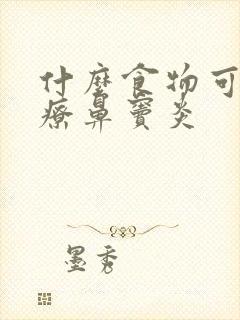 什麼食物可
療鼻竇炎
墨秀